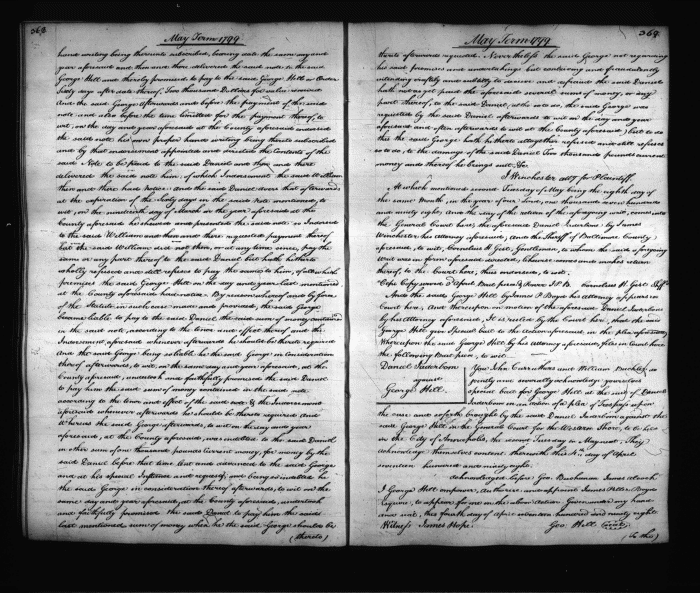 368
May Term 1799
hand writing being thereunto subscribed, bearing date the same day and
year aforesaid and then and there delivered the said note to the said
George Hell and thereby promised to pay to the said George Hell or Order
Sixty days after date thereof, Two thousand Dollars for value received
And the said George afterwards and before the payment of the said
note and also before the time limitted for the payment thereof, to
wit, on the day and year aforesaid at the County aforesaid endorsed
the said note his own proper hand writing being thereto subscribed
and by that endorsement appointed the Contents of the
said Note to be paid to the said Daniel and then and there
delivered the said note so of which Indorsement the said William
then and there had notice. And the said Daniel avers that afterwards
at the expiration of the Sixty days in the said Note mentioned, to
wit, on the nineteenth day of March in the year aforesaid at the
County aforesaid he shewed and presented the said note so Indorsed
to the said William and then and there requested payment thereof
but the said William did not then, or at any time since, pay the
same or any part thereof to the said Daniel but hath hitherto
wholly refused and still refuses to pay the same to him, of all which
premises the said George Hell on the day and year last mentioned
at the County aforesaid had notice. By reason whereof and by form
of the Statute in such case made and provided, the said George
became liable to pay to the said Daniel the said sum of money contained
in the said note, according to the tenor and effect thereof and the
Indorsement aforesaid whenever afterwards he should be thereto required
And the said George being so liable he the said George in Consideration
thereof afterwards, to wit, on the same day and year aforesaid, at the
County aforesaid, undertook and faithfully promised the said Daniel
to pay him the said sum of money contained in the said note
according to the tenor and effect of the said note & the Indorsement
aforesaid whenever afterwards he should be thereto required And
Whereas the said George afterwards, to wit on the day and year
aforesaid, at the County aforesaid, was indebted to the said Daniel
in other sum of one thousand pounds Current money, for money by the
said Daniel before that time lent and advanced to the said George
and at his special instance and request, and being so indebted he
the said George in consideration thereof afterwards, to wit on the
same day and year aforesaid, at the County aforesaid, undertook
and faithfully promised the said Daniel to pay him the said
last mentioned sum of money when he the said George should be
(thereto)
369
May Term 1799
thereto afterwards requested. Nevertheless the said George not regarding
his said promises and undertakings but contriving and fraudulently
intending craftily and subtily to deceive and defraud the said Daniel
hath not as yet paid the aforesaid several sums of money, or any
part thereof, to the said Daniel, altho to do, the said George was
requested by the said Daniel afterwards to wit on the day and year
aforesaid and often afterwards to wit at the County aforesaid) but to do
this the said George hath hitherto altogether refused and still refuses
so to do, to the damage of the said Daniel Two thousand pounds current
money and thereof he brings suit &c.
J. Winchester att.y for Plaintiff.
At which mentioned second Tuesday of May being the eighth day of
the same Month, in the year of our Lord, one thousand seven hundred
and ninety eight, And the day of the return of the aforegoing writ, comes into
the General Court here, the aforesaid Daniel by James
Winchester his attorney aforesaid, And the Sheriff of Baltimore County
aforesaid, to wit, Cornelius H. Gist, Gentleman, to whom the said aforegoing
writ was in form aforesaid directed, likewise comes and makes return
thereof, to the Court here, thus endorsed, to wit.
Cepi Copy Cornelius H. Gist Shff
And the said George Hell by James P. Boyd his attorney appears in
Court here, And thereupon on motion of the aforesaid Daniel
by his Attorney aforesaid, It is ruled by the Court here, that the said
George Hell give Special bail to the action aforesaid, in the plea aforesaid
Whereupon the said George Hell by his attorney aforesaid, files in Court here
the following Bail piece, to wit.
Daniel
against
George Hell
You John Carruthers and William
jointly and severally acknowledge yourselves
special bail for George Hell at the suit of Daniel
in an action of a plea of Trespass upon
the case and so forth brought by the said Daniel against the
said George Hell in the General Court for the Western Shore, to be held
in the City of Annapolis, the second Tuesday in May next; They
acknowledge themselves content therewith this 4th day of April
seventeen hundred and ninety eight.
acknowledged before Geo. Buchanan James Alcock
I George Hell empower, authorise and appoint James Boyd
Esquire, to appear for me in the above Action Given under my hand
and seal, this fourth day of April seventeen hundred and ninety eight
Witness James Hope. Geo. Hell (seal)
(To the)